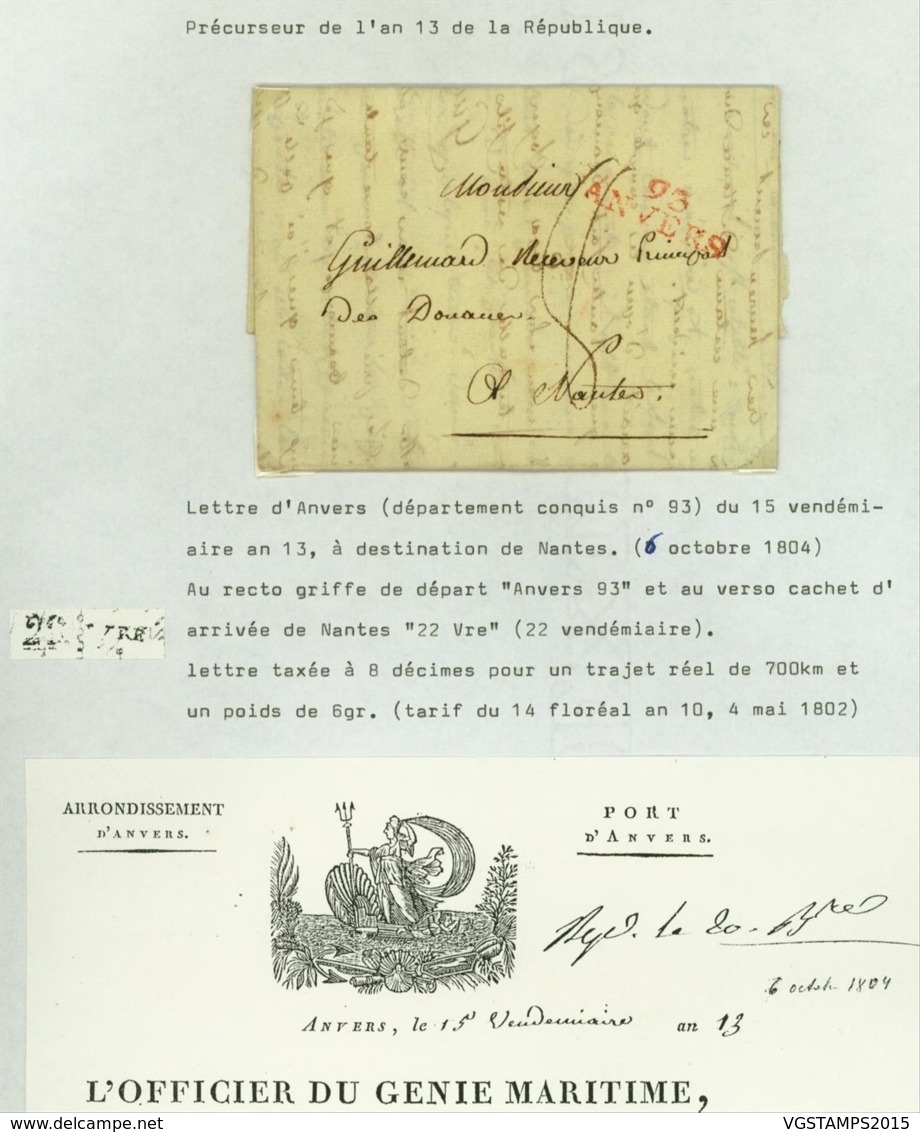 Précurseur de l'an 13 de la République.
93
ANVERS
Monsieur
Guillemard Receveur Principal
des Douanes.
8
A Nantes.
Lettre d'Anvers (département conquis n° 93) du 15 vendémi-
aire an 13, à destination de Nantes. (6 octobre 1804)
Au recto griffe de départ "Anvers 93" et au verso cachet d'
arrivée de Nantes "22 Vre" (22 vendémiaire).
lettre taxée à 8 décimes pour un trajet réel de 700km et
un poids de 6gr. (tarif du 14 floréal an 10, 4 mai 1802)
ARRONDISSEMENT
D'ANVERS.
PORT
D'ANVERS.
le 20
6 octob 1804
ANVERS, le 15 Vendemiaire an 13
L'OFFICIER DU GENIE MARITIME,
VGSTAMPS2015